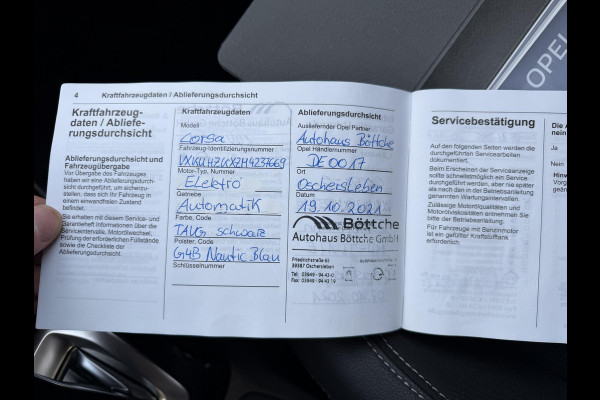 OPEL
4 Kraftfahrzeugdaten / Ablieferungsdurchsicht
Kraftfahrzeug-
daten / Abliefe-
rungsdurchsicht
Ablieferungsdurchsicht und
Fahrzeugübergabe
Vor Übergabe des Fahrzeuges
haben wir eine Ablieferungsdurch-
sicht durchgeführt, um sicherzu-
stellen, dass sich Ihr Fahrzeug in
einem einwandfreien Zustand
befindet.
Sie erhalten mit diesem Service- und
Garantieheft Informationen über die
Serviceintervalle, Motorölwechsel,
Prüfung der erforderlichen Füllstände
sowie die Checkliste der
Ablieferungsdurchsicht.
Kraftfahrzeugdaten
Modell
Corsa
Fahrzeug-Identifizierungsnummer
Motor-Typ, Nummer
Elektro
Getriebe
Automatik
Farbe, Code
TAUG schwarz
Polster, Code
G4B Nautic Blau
Schlüsselnummer
Ablieferungsdurchsicht
Ausliefernder Opel Partner
Autohaus Böttche
Opel Händlernummer
DE0017
Ort
Oschersleben
Datum
19.10.2021
Böttche
Autohaus Böttche GmbH
39387 Oschersleben
Servicebestätigung
Auf den folgenden Seiten werden die
durchgeführten Servicearbeiten
dokumentiert.
Beim Erscheinen der Serviceanzeige
sollte schnellstmöglich ein Service
durchgeführt werden, aber nie später
als nach den in der Betriebsanleitung
genannten Wartungsintervallen.
Zulässige Motorölqualitäten und
Motorölviskositäten entnehmen Sie
bitte der Betriebsanleitung.
Für Fahrzeuge mit Benzinmotor
ist ein gefüllter Kraftstofftank
erforderlich.
Die A
nein
Ja
Nein
Hinw
Vorg
geän